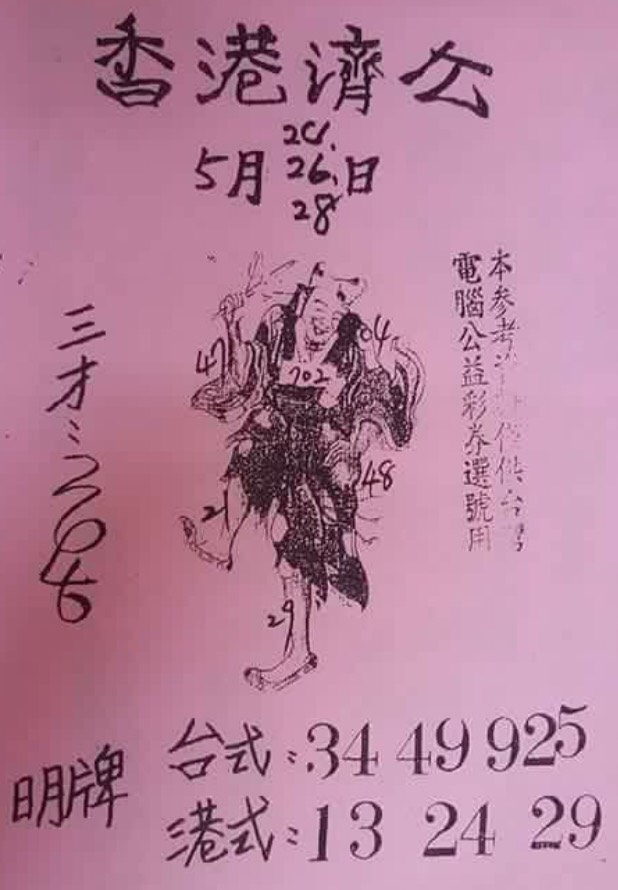 香港濟公
24.
5月26.日
28
本參考
僅供台灣
電腦公益彩券選號用
三才:2646
47
04
702
48
21
29
明牌
台式:34 49 925
港式:13 24 29